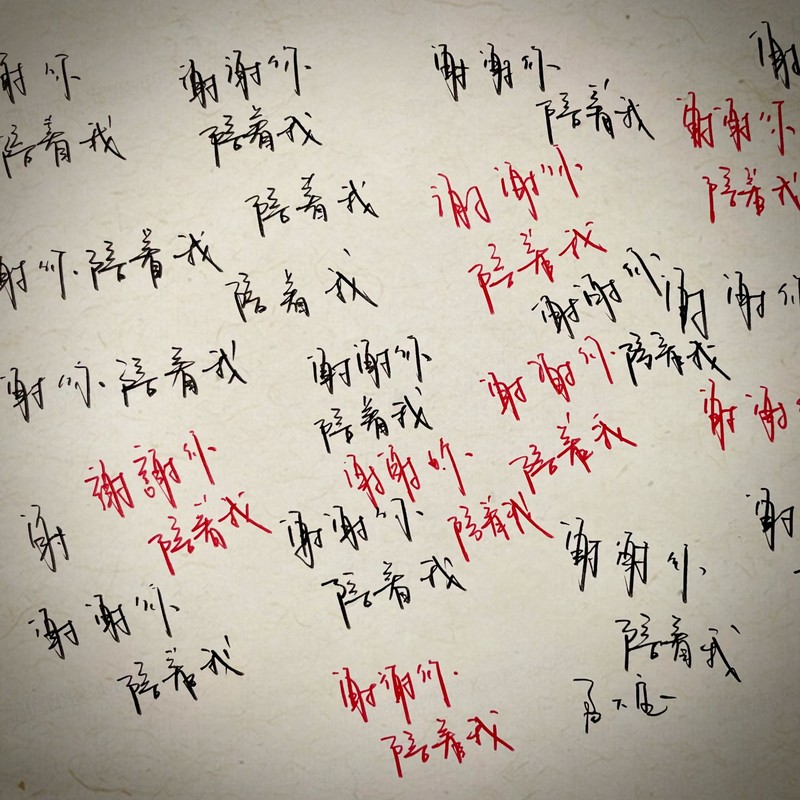 谢你
谢谢你
谢谢你
谢
陪着我
陪着我
陪着我
谢谢你
陪着我
谢谢你
陪着我
谢你陪着我
陪着我
陪着我
谢谢你
谢谢你
谢你陪着我
谢谢你
谢谢你
陪着我
谢谢
陪着我
谢谢你
谢谢你
陪着我
陪着我
谢
谢谢你
陪着我
谢谢你
谢
陪着我
谢谢你
陪着我
陪着我
谢谢你
陪着我